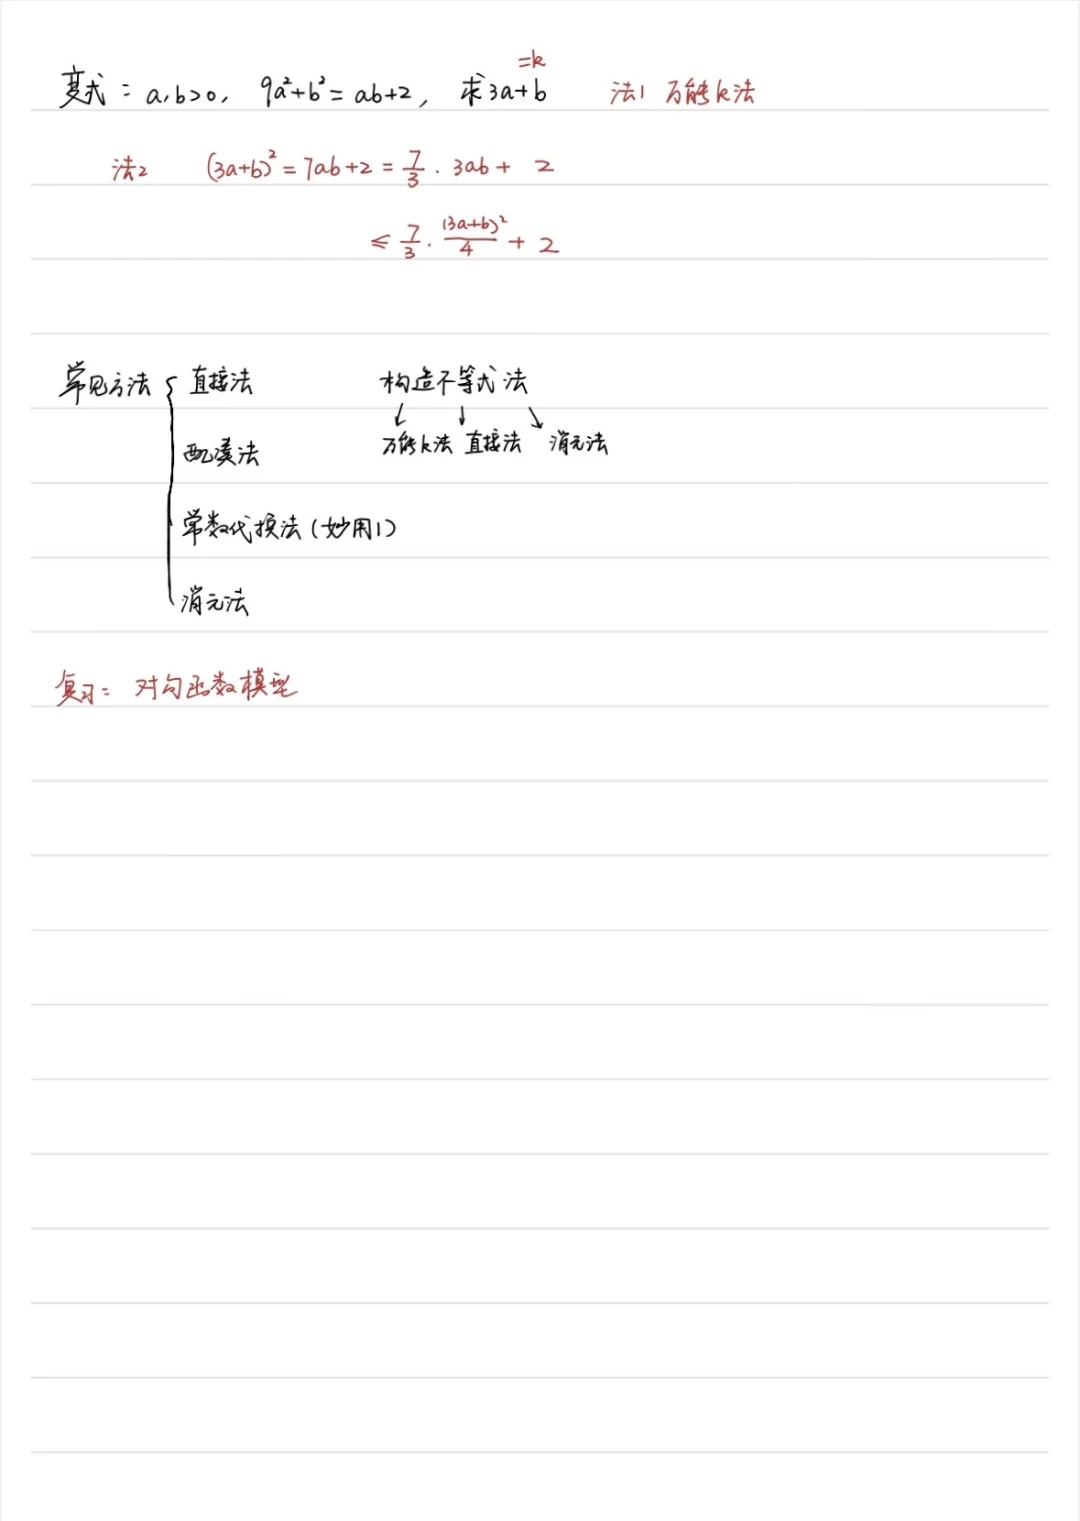 变式：a,b>0, 9a²+b²=ab+2, 求3a+b =k 法1 万能k法
法2 (3a+b)²=7ab+2=7/3·3ab+2
≤7/3·(3a+b)²/4+2
常见方法{直接法 构造不等式法
配凑法 万能k法 直接法 消元法
常数代换法(妙用1)
消元法
复习：对勾函数模型